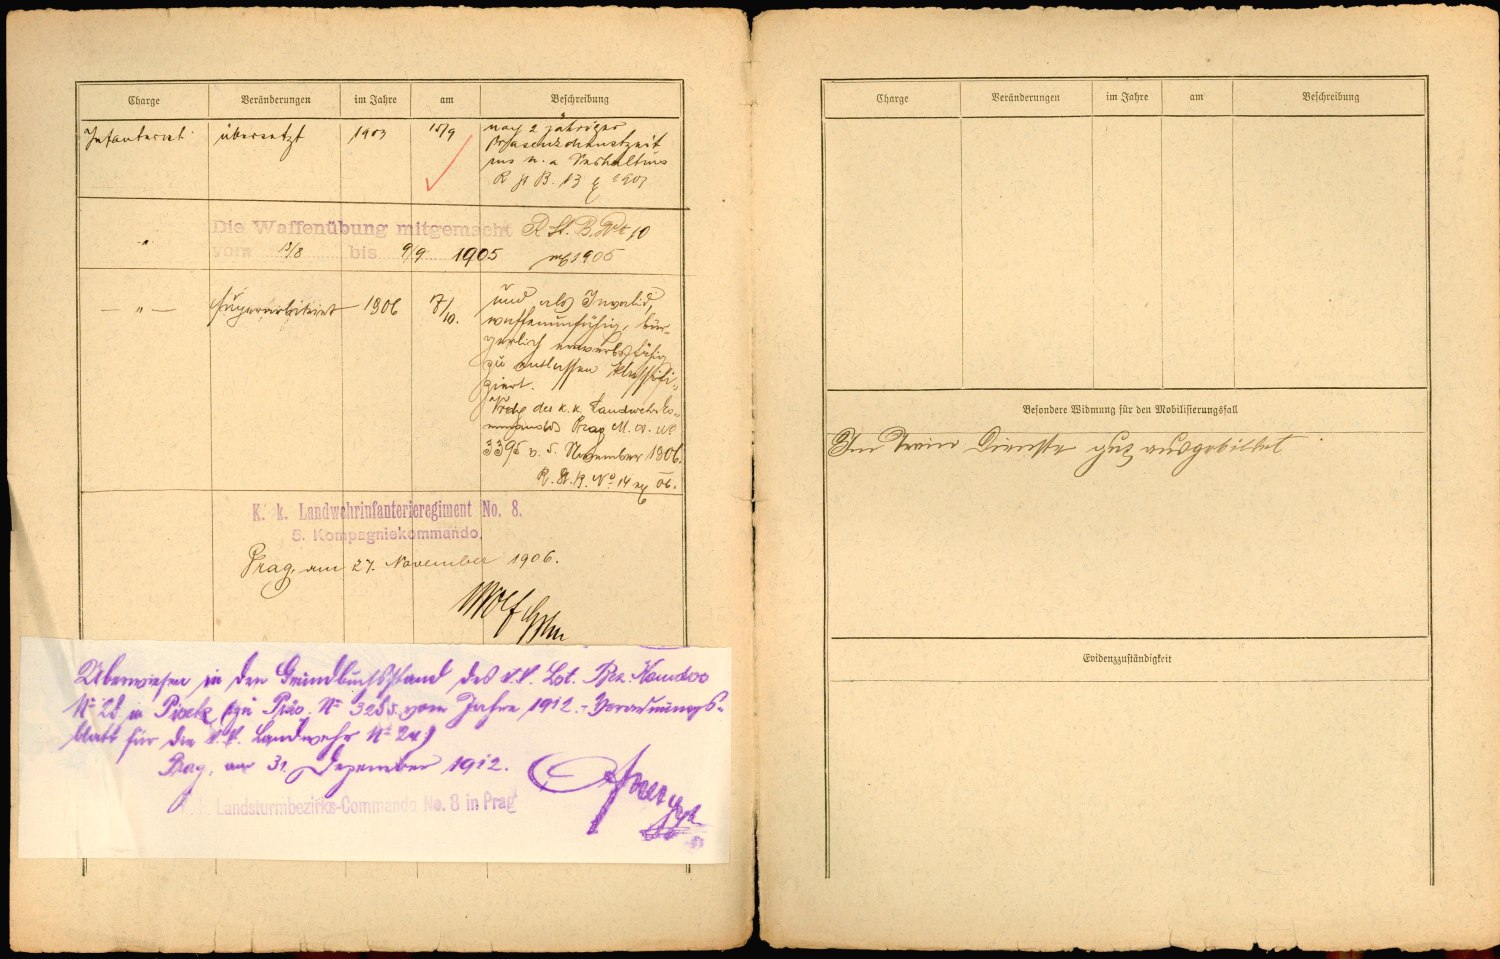 Charge Veränderungen im Jahre am Beschreibung
Infanterist übersetzt 1903 15/9 nach 2 jähriger
Präsenzdienstzeit
ins n. a Verhältnis
R St B. 13 ex 1903
" Die Waffenübung mitgemacht R. St. B. No 10
vom 13/8 bis 9/9 1905 ex 1905
— " — superarbitriert 1906 7/10. und als Invalid,
waffenunfähig, bür-
gerlich erwerbsfähig
zu entlassen klassifi-
ziert.
des k. k. Landwehrko-
mmandos Prag M. A. No
3395 v. 5. November 1906.
R. St. B. No 14 ex 06.
K. k. Landwehrinfanterieregiment No. 8.
5. Kompagniekommando.
Prag, am 27. November 1906.
Überwiesen in den Grundbuchsstand des k. k. Lst. Bez. Komdos
No 28 in Pisek (zu Präs. No vom Jahre 1912. - Verordnungs-
blatt für die k. k. Landwehr No
Prag, am 31. Dezember 1912.
k. k. Landsturmbezirks-Commando No. 8 in Prag
Charge Veränderungen im Jahre am Beschreibung
Besondere Widmung für den Mobilisierungsfall
Im Train Dienste gut ausgebildet.
Evidenzzuständigkeit